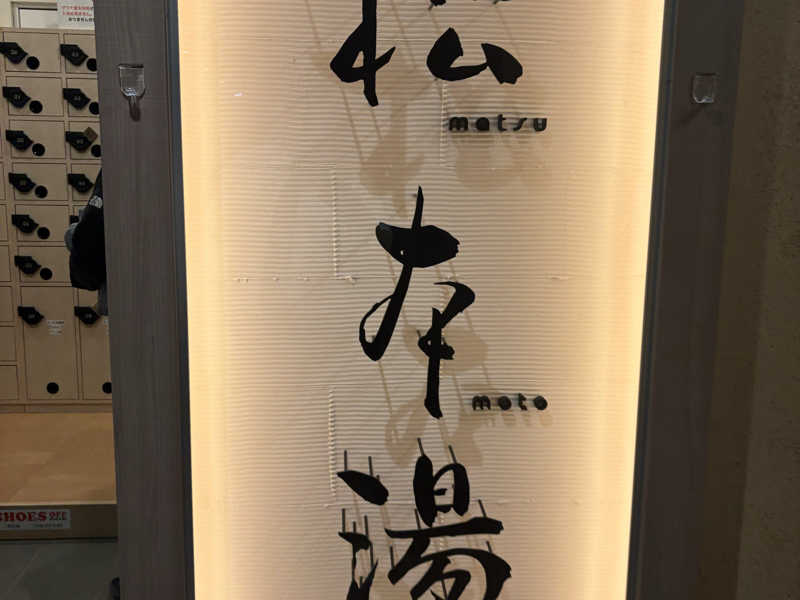 松
matsu
本
moto
湯
SHOES